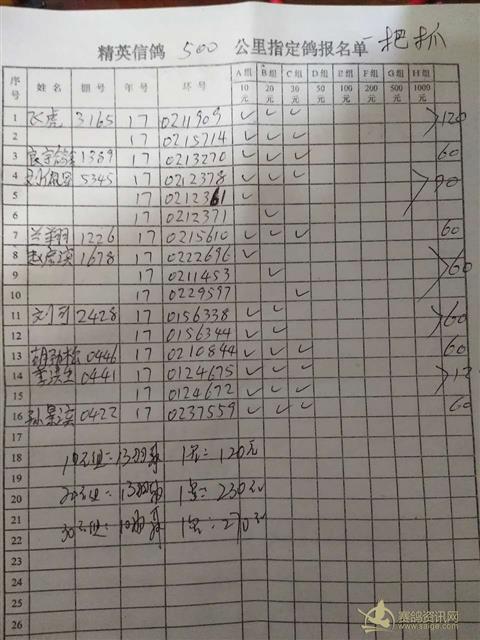 精英信鸽 500 公里指定鸽报名单 一把抓
序号 姓名 棚号 年号 环号 A组10元 B组20元 C组30元 D组50元 E组100元 F组200元 G组500元 H组1000元
1 飞虎 3165 17 0211909 ✓ ✓ ✓ >120
2 17 0215714 ✓ ✓ ✓
3 1389 17 0213270 ✓ ✓ ✓ 60
4 5345 17 0212378 ✓ ✓ ✓ >90
5 17 0212361 ✓
6 17 0212371 ✓
7 兰翔 1226 17 0215610 ✓ ✓ ✓ 60
8 1678 17 0222696 ✓ >60
9 17 0211453 ✓
10 17 0229597 ✓
11 刘可 2428 17 0156338 ✓ ✓ >60
12 17 0156344 ✓ ✓
13 胡劲松 0446 17 0210844 ✓ ✓ ✓ 60
14 0441 17 0124675 ✓ ✓ ✓ >12
15 17 0124672 ✓ ✓ ✓
16 0422 17 0237559 ✓ ✓ ✓ 60
17
18 10元组=13羽 1名: 120元
19
20 20元组=13羽 1名: 230元
21
22 30元组: 10羽 1名: 270元
23
24
25
26
赛鸽资讯网
www.saige.com